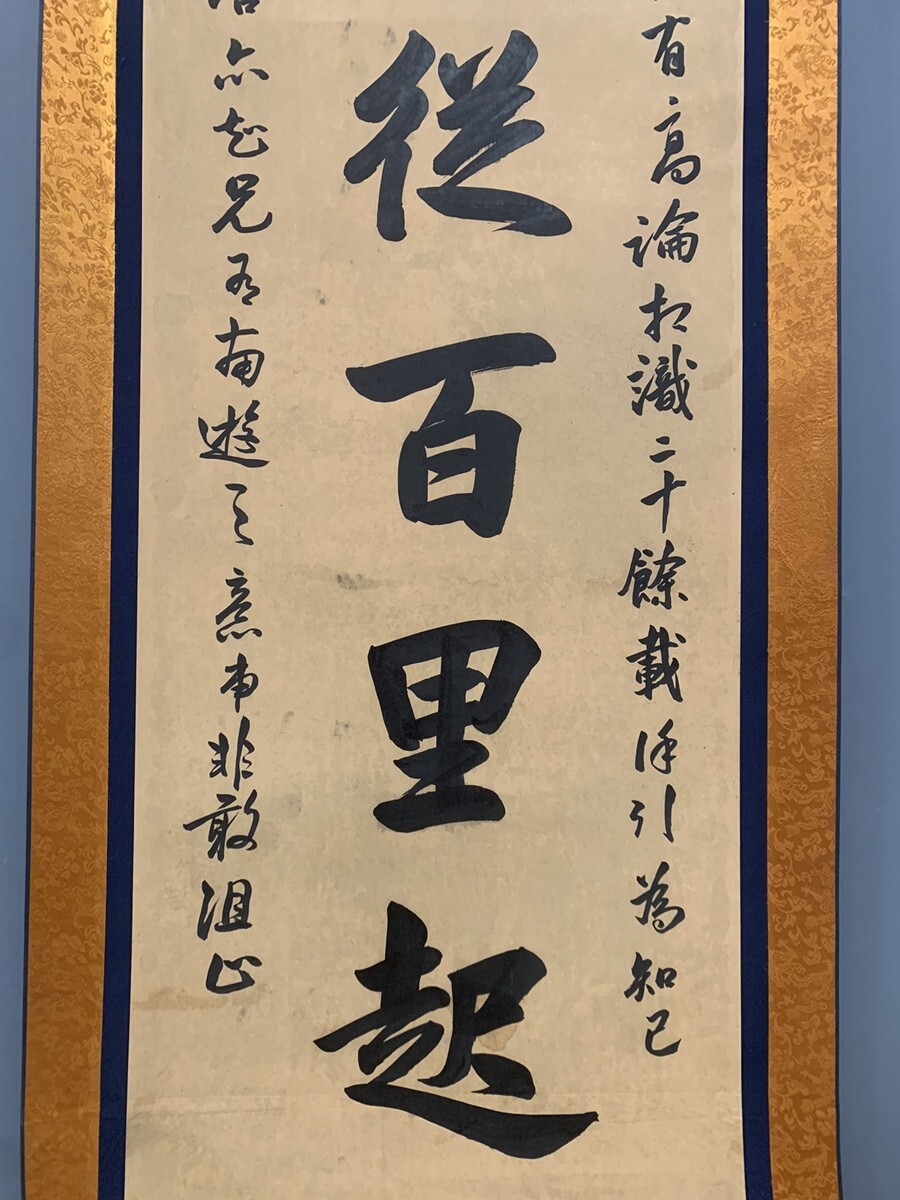 有高論相識二十餘載係引為知己
從百里起
亦知兄有南遊之意弟非敢阻止